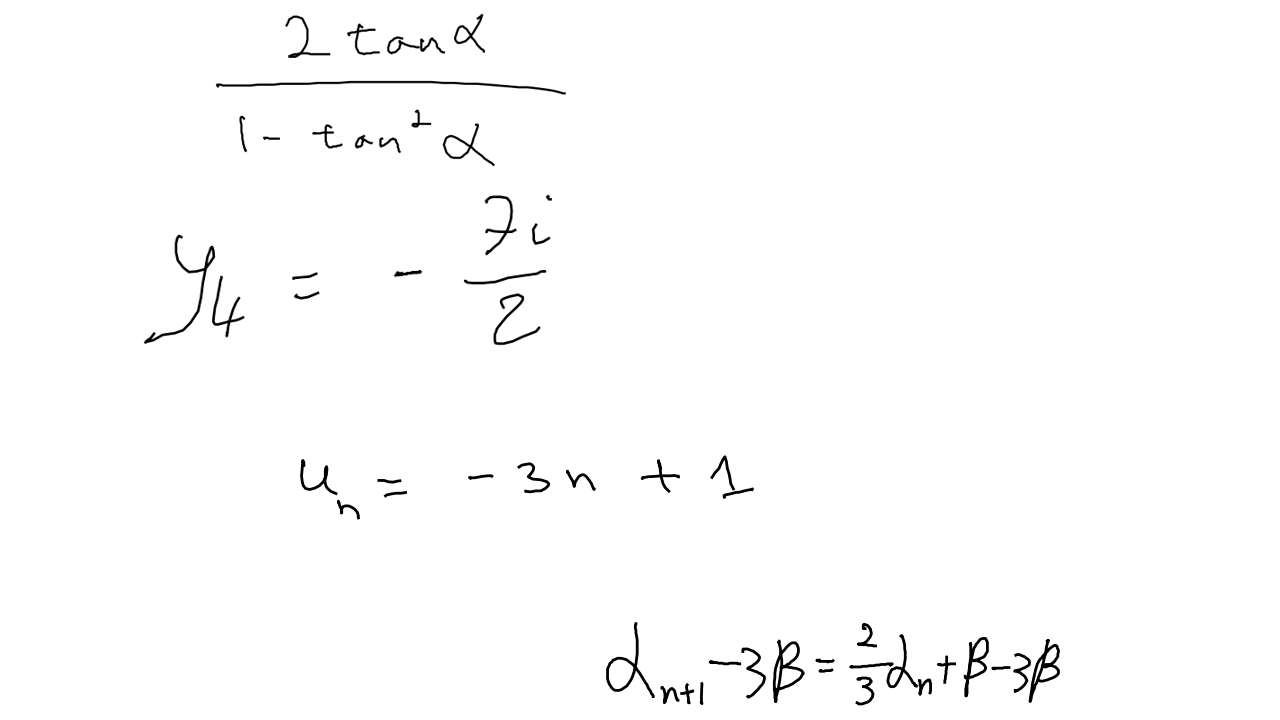 \frac{2 \tan \alpha}{1 - \tan^2 \alpha}
y_4 = - \frac{7i}{2}
u_n = -3n + 1
\alpha_{n+1} - 3\beta = \frac{2}{3} \alpha_n + \beta - 3\beta